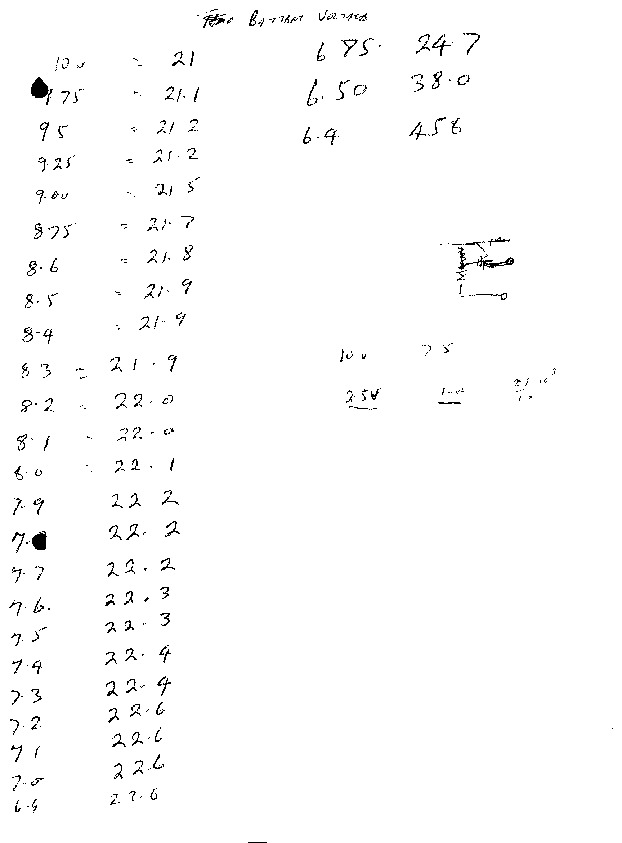 Battery Voltage
10 v = 21
75 = 21.1
9 5 = 21.2
9.25 = 21.2
9.00 - 21.5
8.75 = 21.7
8.6 = 21.8
8.5 = 21.9
8.4 = 21.9
8 3 = 21.9
8.2 = 22.0
8.1 - 22.0
8.0 = 22.1
7.9 22 2
7. 22.2
7.7 22.2
7.6. 22.3
7.5 22.3
7.4 22.4
7.3 22.4
7.2 22.6
7 1 22.6
7.0 22 6
6.9 22.6
6 75. 24 7
6.50 38.0
6.4 45 8
10 v 7 5
2.5V